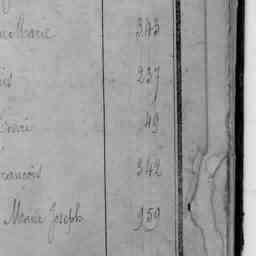 Marie 343
237
49
rançois 342
Marie Joseph 959